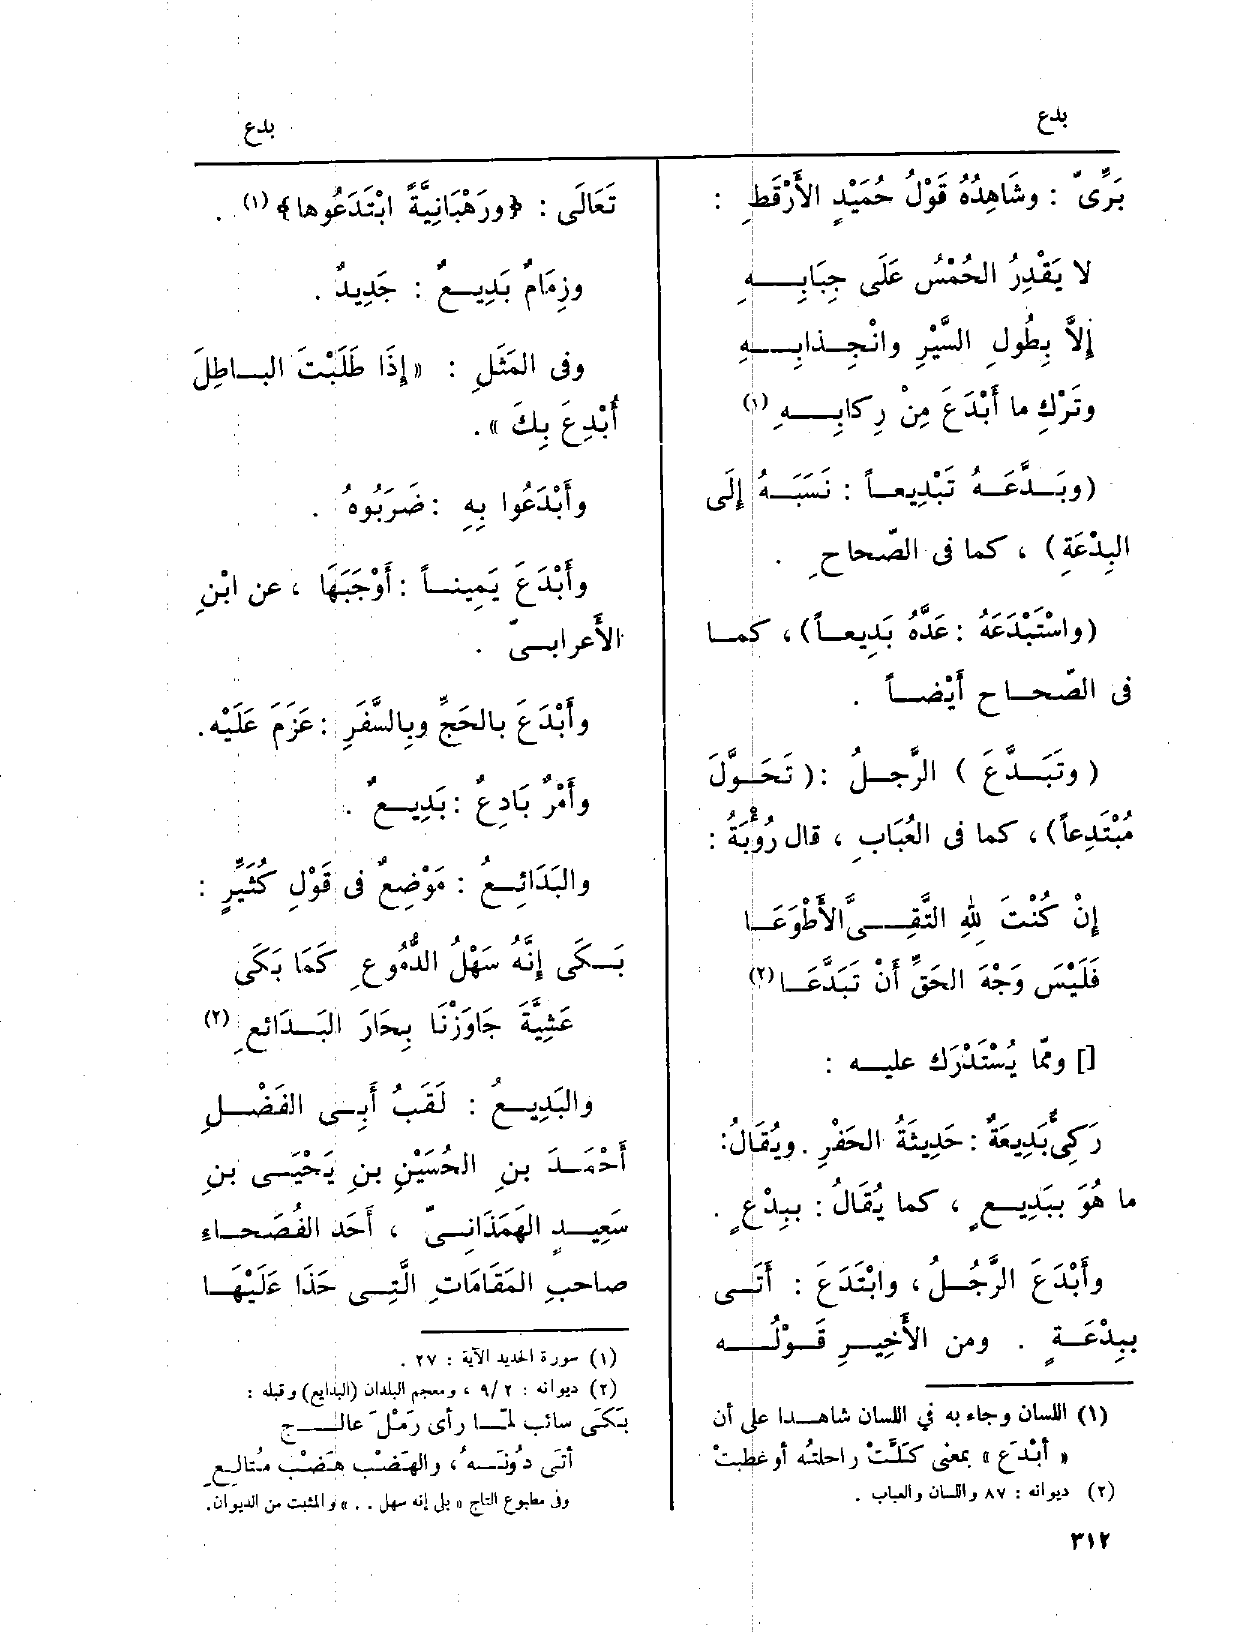 بدع
بدع
بَرِّىّ : وشَاهِدُهُ قَوْلُ حُمَيْدٍ الأَرْقَطِ :
لا يَقْدِرُ الحُمْسُ عَلَى جِبَابِــــهِ
إِلاَّ بِطُولِ السَّيْرِ وانْجِــذابِــهِ
وتَرْكِ ما أَبْدَعَ مِنْ رِكابِــــهِ (١)
(وبَــدَّعَــهُ تَبْدِيعــاً : نَسَبَــهُ إِلَى
البِدْعَةِ) ، كما فى الصّحاحِ .
(واسْتَبْدَعَهُ : عَدَّهُ بَدِيعــاً)، كمــا
فى الصّحــاح أَيْضــاً .
( وتَبَــدَّعَ ) الرَّجــلُ :( تَحَــوَّلَ
مُبْتَدِعاً)، كما فى العُبَابِ ، قال رُؤْبَةُ :
إِنْ كُنْتَ لِلهِ التَّقِــىَّ الأَطْوَعَــا
فَلَيْسَ وَجْهَ الحَقِّ أَنْ تَبَدَّعَــا (٢)
[] وممّا يُسْتَدْرَك عليــه :
رَكِىٌّ بَدِيعَةٌ : حَدِيثَةُ الحَفْرِ . ويُقَالُ:
ما هُوَ بِبَدِيــعٍ ، كما يُقَالُ : بِبِدْعٍ .
وأَبْدَعَ الرَّجُــلُ ، وابْتَدَعَ : أَتَــى
بِبِدْعَــةٍ . ومن الأَخِيــرِ قَــوْلُــه
(١) اللسان وجاء به في اللسان شاهــدا على أن
« أبْدَع » بمعنى كَلَّتْ راحلتُه أو عَطِبتْ
(٢) ديوانه : ٨٧ واللسان والعباب .
تَعَالَى : ﴿ورَهْبَانِيَّةً ابْتَدَعُوها﴾ (١) .
وزِمَامٌ بَدِيــعٌ : جَدِيدٌ .
وفى المَثَلِ : «إِذَا طَلَبْتَ البــاطِلَ
أُبْدِعَ بِكَ ».
وأَبْدَعُوا بِهِ :ضَرَبُوهُ .
وأَبْدَعَ يَمِينــاً : أَوْجَبَهَا ، عن ابْنِ
الأَعرابــىّ .
وأَبْدَعَ بالحَجِّ وبِالسَّفَرِ : عَزَمَ عَلَيْه.
وأَمْرٌ بَادِعٌ : بَدِيــعٌ .
والبَدَائِــعُ : مَوْضِعٌ فى قَوْلِ كُثَيِّرٍ :
بَــكَى إِنَّهُ سَهْلُ الدُّمُوعِ كَمَا بَكَى
عَشِيَّةَ جَاوَزْنَا بِحَارَ البَــدَائعِ (٢)
والبَدِيــعُ : لَقَبُ أَبِــى الفَضْــلِ
أَحْمَــدَ بنِ الحُسَيْنِ بنِ يَحْيَــى بنِ
سَعِيــدٍ الهَمَذَانِــىّ ، أَحَد الفُصَحــاءِ
صاحبِ المَقَامَاتِ الَّتِــى حَذَا عَلَيْهَــا
(١) سورة الحديد الآية : ٢٧ .
(٢) ديوانه : ٩/٢ ، ومعجم البلدان (البدايع) وقبله :
بَكَى سائب لمّــا رأى رَمْلَ عالــــج
أتى دُونَــهُ ، والهَضْب هَضْب مُتالــعِ
وفى مطبوع التاج « بلى إنه سهل . . » والمثبت من الديوان.
٣١٢